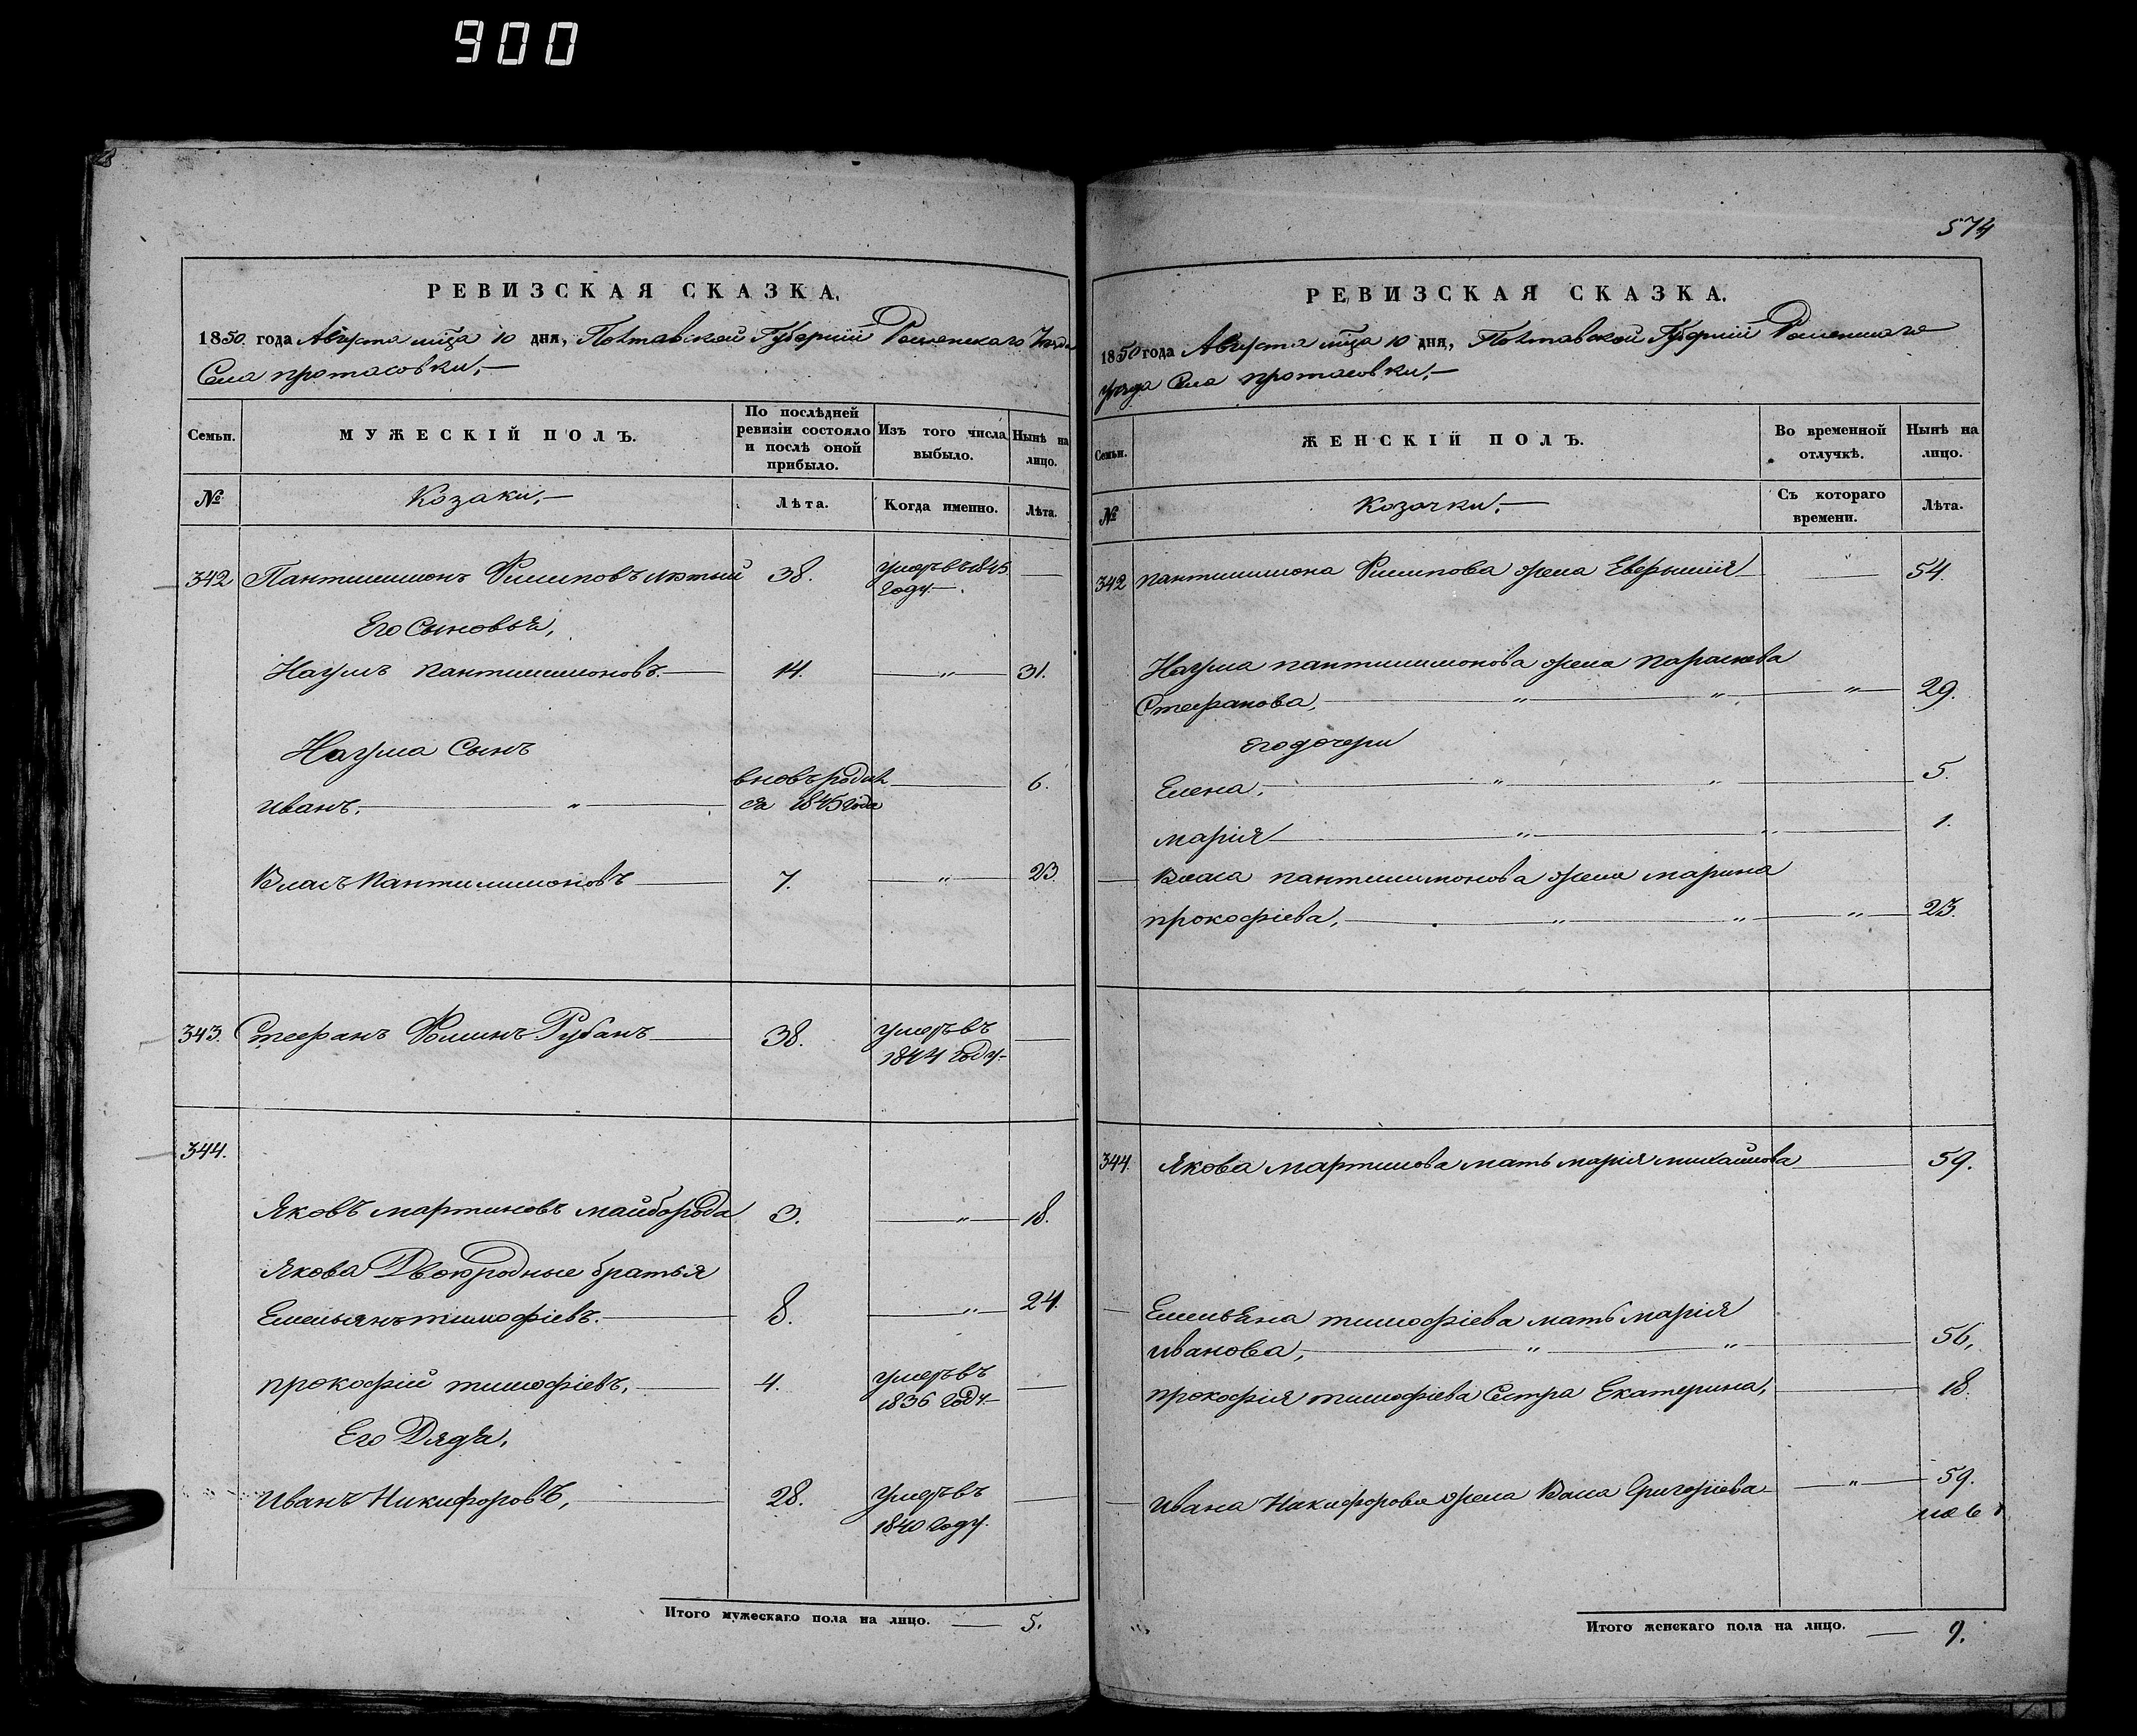 900
РЕВИЗСКАЯ СКАЗКА.
1850 года Августа мца 10 дня, Полтавской Губернии Роменскаго Уезда
Села протасовки,
Семьи. МУЖЕСКІЙ ПОЛЪ. По послѣдней ревизіи состояло и послѣ оной прибыло. Изъ того числа выбыло. Нынѣ на лицо.
№ Козаки, Лѣта. Когда именно. Лѣта.
342 Пантилимонъ Филиповъ лютый 38. умеръ в 1845 году —
Его Сыновья,
Наумъ пантилимоновъ. 14. " 31.
Наума Сынъ
иванъ. " вновь родил ся 1845 года 6.
Власъ пантилимоновъ 7. " 23.
343. Стефанъ Фоминъ Рубанъ 38. умеръ въ 1844 году —
344.
Яковъ мартиновъ майборода 3. " 18.
Якова Двоюродные братья
Емельянъ тимофіевъ. 8. " 24.
прокофій тимофіевъ. 4. умеръ въ 1836 году —
Его Дядя,
иванъ Никифоровъ, 28. умеръ въ 1840 году. —
Итого мужескаго пола на лицо. 5.
574
РЕВИЗСКАЯ СКАЗКА.
1850 года Августа мца 10 дня, Полтавской Губернии Роменскаго
уезда Села протасовки,
Семьи. ЖЕНСКІЙ ПОЛЪ. Во временной отлучкѣ. Нынѣ на лицо.
№ Козачки, Съ котораго времени. Лѣта.
342 пантилимона Филипова жена " 54.
Наума пантилимонова жена параскева
Стефанова, " " " 29.
его дочери
Елена, " " 5.
марія " " 1.
Власа пантилимонова жена марина
прокофіева, " " " 23.
344. Якова мартинова мать марія михайлова 59.
Емельяна тимофіева мать марія
иванова, " " 56.
прокофія тимофіева Сестра Екатерина, 18.
ивана Никифорова жена Григоріева " 59.
Итого женскаго пола на лицо. 9.